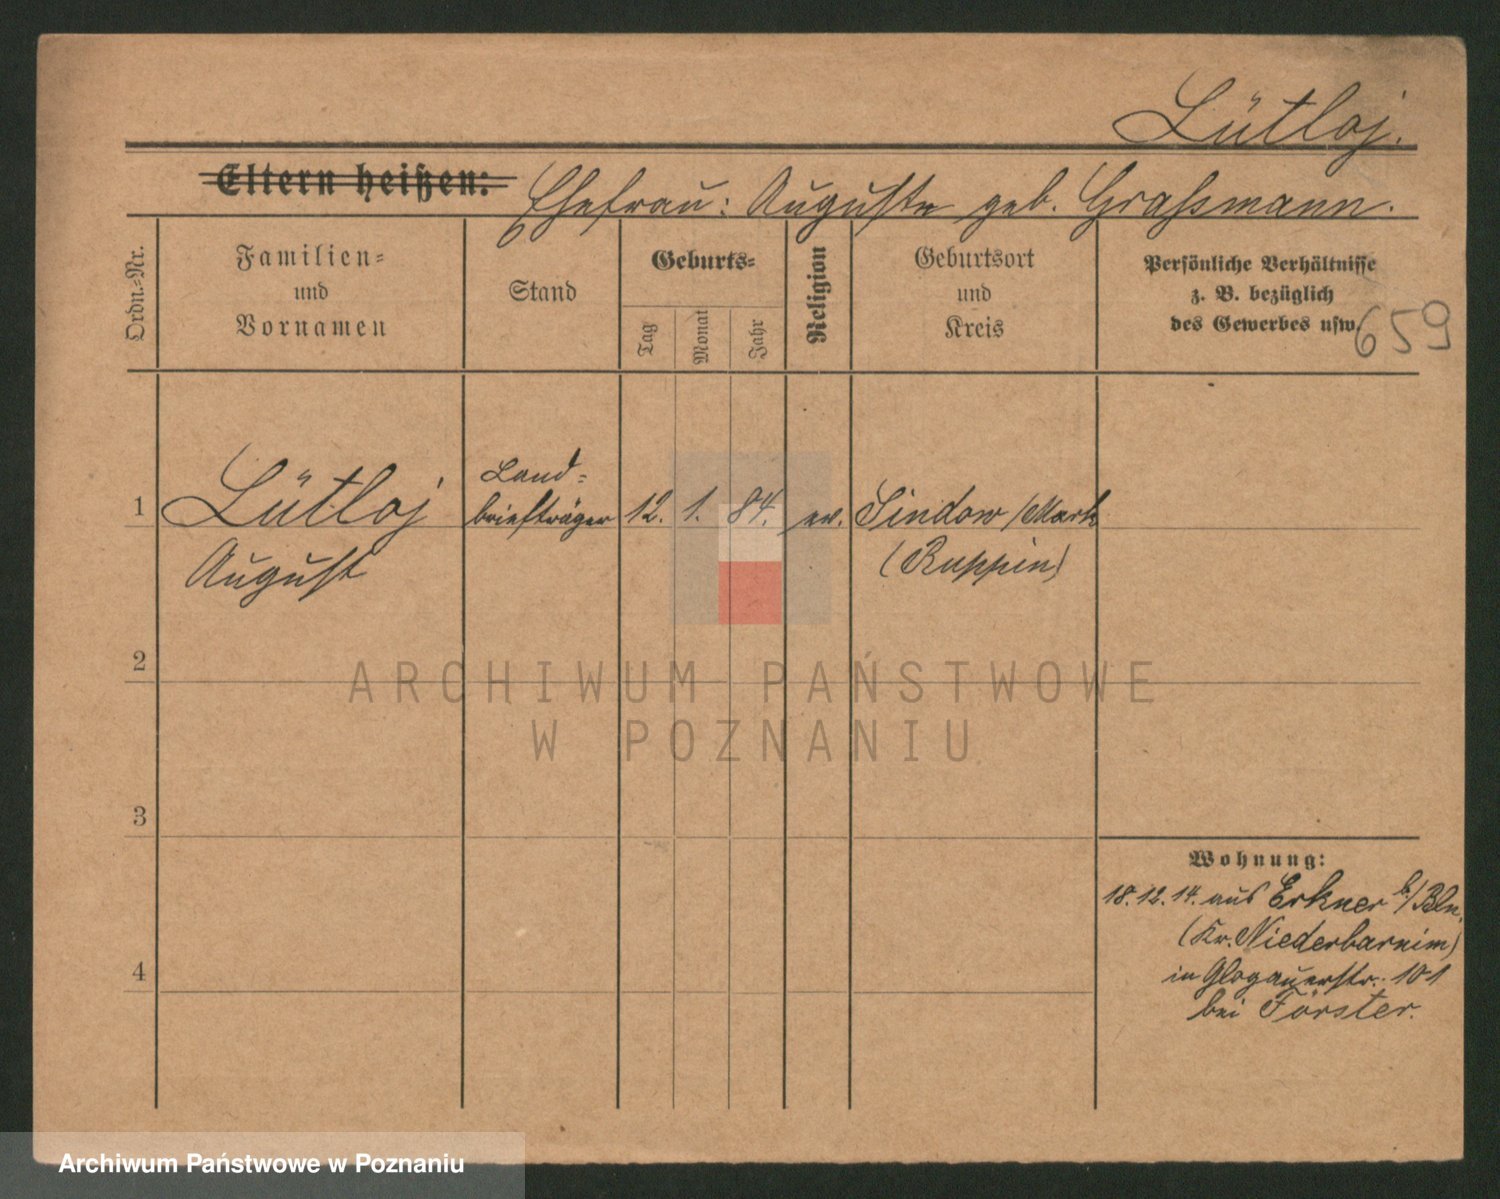 Lütloj.
Eltern heißen: Ehefrau: Auguste geb. Graßmann.
Ordn.-Nr.
Familien-
und
Vornamen
Stand
Geburts-
Tag
Monat
Jahr
Religion
Geburtsort
und
Kreis
Persönliche Verhältnisse
z. B. bezüglich
des Gewerbes usw.
659
Land-
1 Lütloj briefträger 12. 1. 84. ev. Lindow /Mark
August (Ruppin)
2
ARCHIWUM PAŃSTWOWE
W POZNANIU
3
Wohnung:
18.12.14. aus Erkner b/Bln.
(Kr. Niederbarnim)
4
in Glogauerstr. 101
bei Förster.
Archiwum Państwowe w Poznaniu